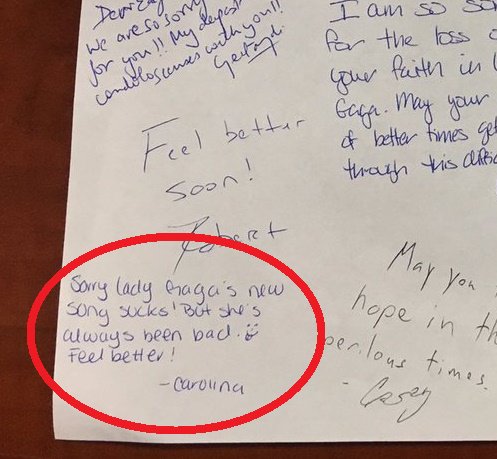 We are so sorry
for you!! My deepest
condolosences with you!!
I am so so
for the loss o
your faith in l
Gaga. May your
of better times get
through this
Feel better
soon!
Robert
Sorry lady Gaga's new
song sucks! But she's
always been bad.
Feel better!
-Carolina
May you
hope in th
perilous times.
- Casey